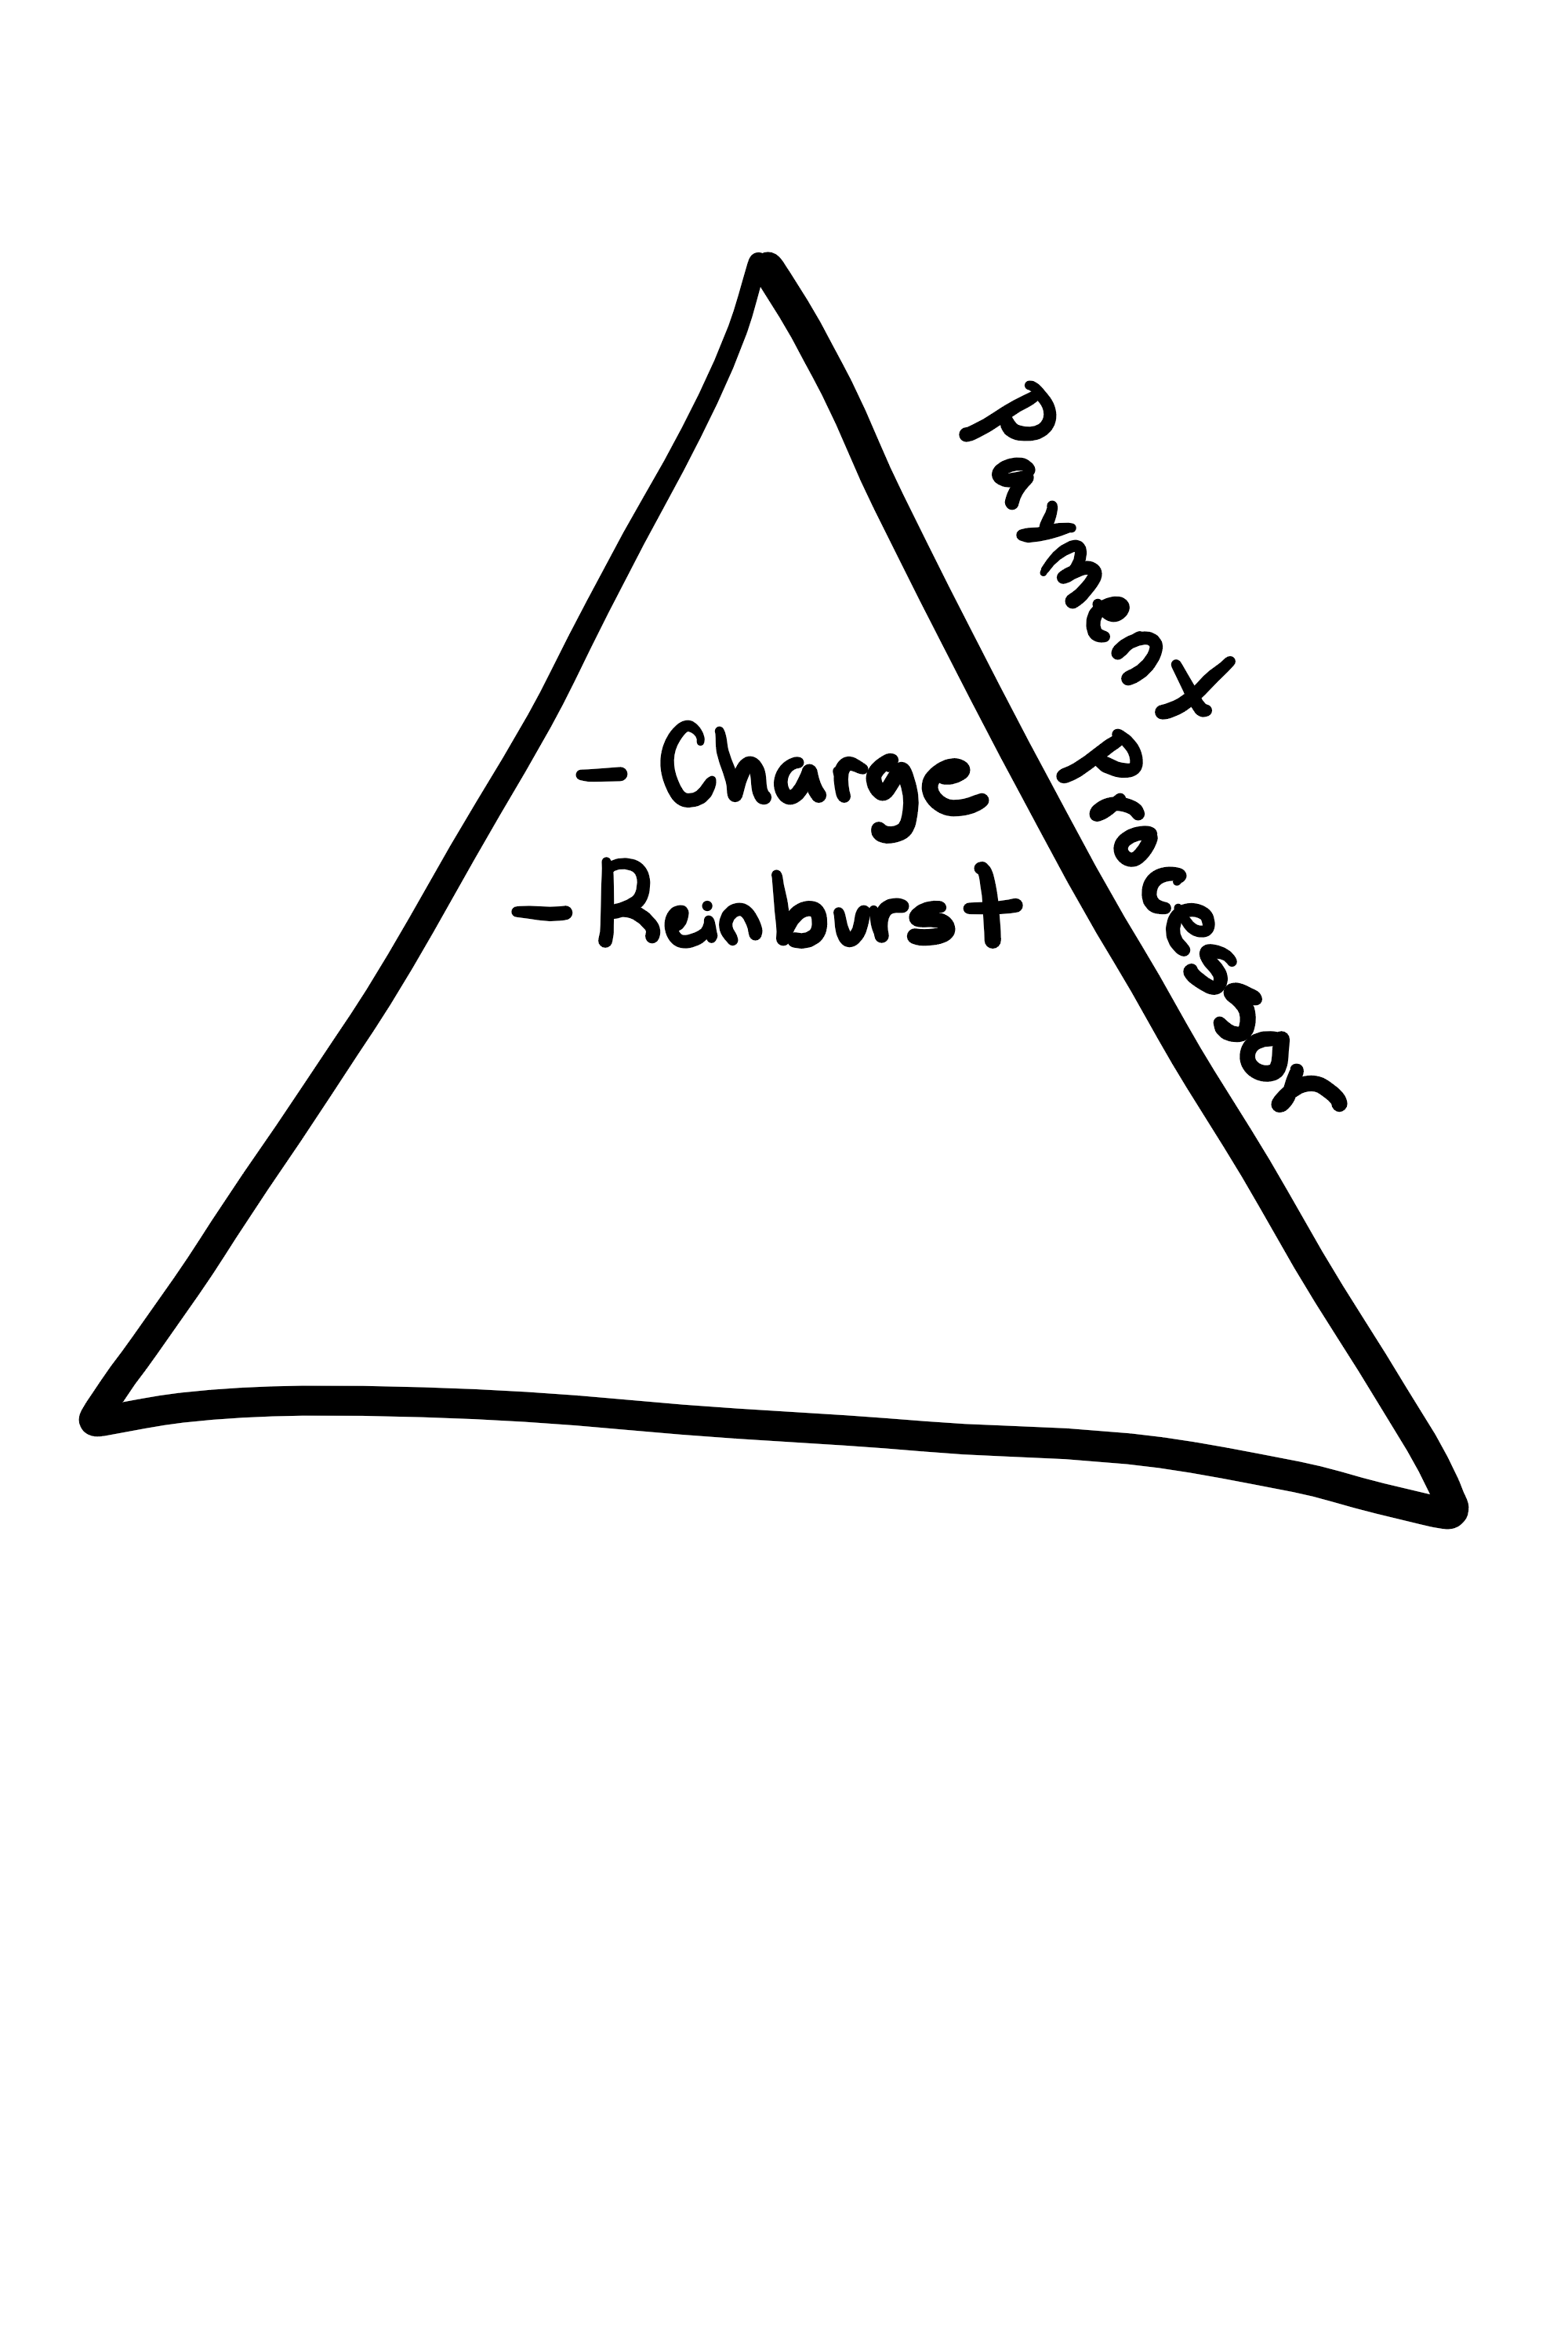 Payment Processor
- Charge
- Reinburst